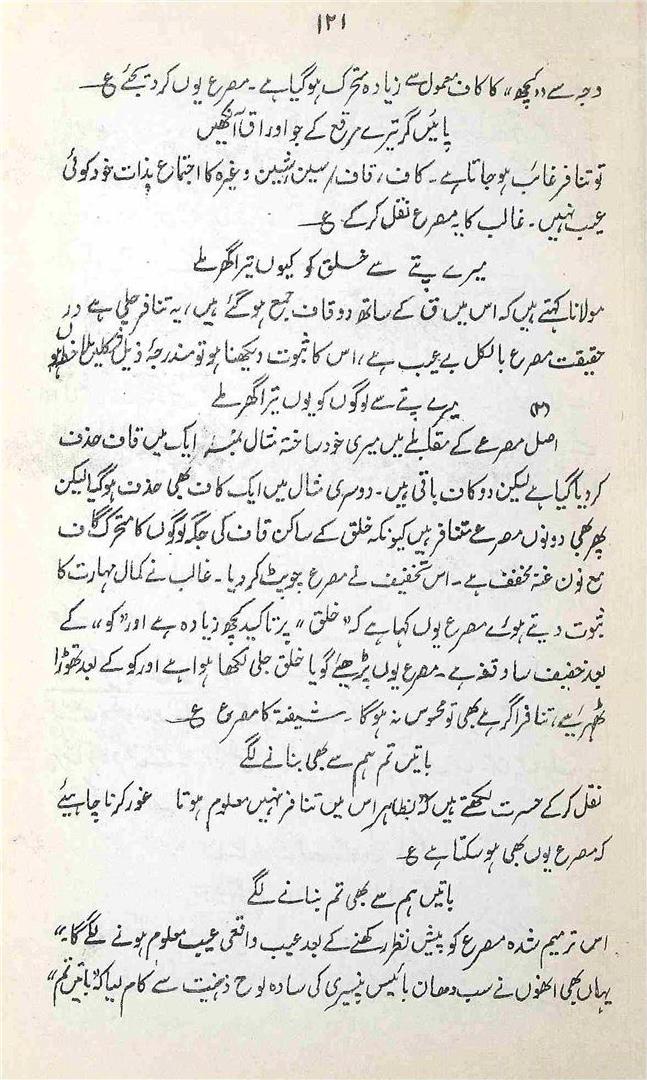 ۱۲۱
وجہ سے "کچھ" کا کاف معمول سے زیادہ متحرک ہوگیا ہے۔ مصرع یوں کر دیجئے ع
پائیں گر تیرے مرقع کے جو اوراق آنکھیں
تو تنافر غائب ہو جاتا ہے۔ کاف، قاف/سین، شین وغیرہ کا اجتماع بذات خود کوئی
عیب نہیں۔ غالب کا یہ مصرع نقل کر کے ع
میرے پتے سے خلق کو کیوں تیرا گھر ملے
مولانا کہتے ہیں کہ اس میں ق کے ساتھ دو قاف جمع ہو گئے ہیں، یہ تنافر جلی ہے در
حقیقت مصرع بالکل بے عیب ہے، اس کا ثبوت دیکھنا ہو تو مندرجۂ ذیل شکلیں ملاحظہ ہوں
(۲) میرے پتے سے لوگوں کو یوں تیرا گھر ملے
اصل مصرعے کے مقابلے میں میری خود ساختہ مثال نمبر ایک میں قاف حذف
کر دیا گیا ہے لیکن دو کاف باقی ہیں۔ دوسری مثال میں ایک کاف بھی حذف ہو گیا لیکن
پھر بھی دونوں مصرعے متنافر ہیں کیونکہ خلق کے ساکن قاف کی جگہ لوگوں کا متحرک گاف
مع نون غنہ مخفف ہے۔ اس تخفیف نے مصرع چوپٹ کر دیا۔ غالب نے کمال مہارت کا
ثبوت دیتے ہوئے مصرع یوں کہا ہے کہ "خلق" پر تاکید کچھ زیادہ ہے اور "کو" کے
بعد خفیف سا وقفہ ہے۔ مصرع یوں پڑھیے گویا خلق جلی لکھا ہوا ہے اور کو کے بعد تھوڑا
ٹھہریے، تنافر اگر ہے بھی تو محسوس نہ ہوگا۔ شیفتہ کا مصرع ع
باتیں تم ہم سے بھی بنانے لگے
نقل کر کے حسرت لکھتے ہیں کہ "بظاہر اس میں تنافر نہیں معلوم ہوتا غور کرنا چاہیئے
کہ مصرع یوں بھی ہو سکتا ہے ع
باتیں ہم سے بھی تم بنانے لگے
اس ترمیم شدہ مصرع کو پیش نظر رکھنے کے بعد عیب واقعی عیب معلوم ہونے لگے گا۔"
یہاں بھی انھوں نے سب دھان بائیس پنسیری کی سادہ لوح ذہنیت سے کام لیا کہ "باتیں تم"